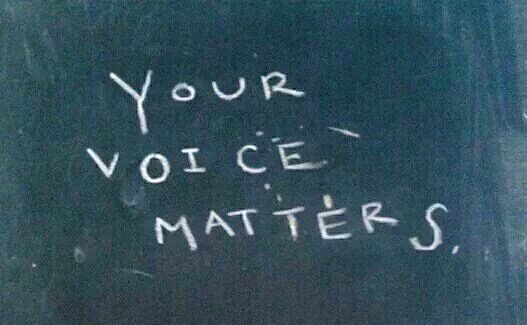 YOUR
VOICE
MATTERS.